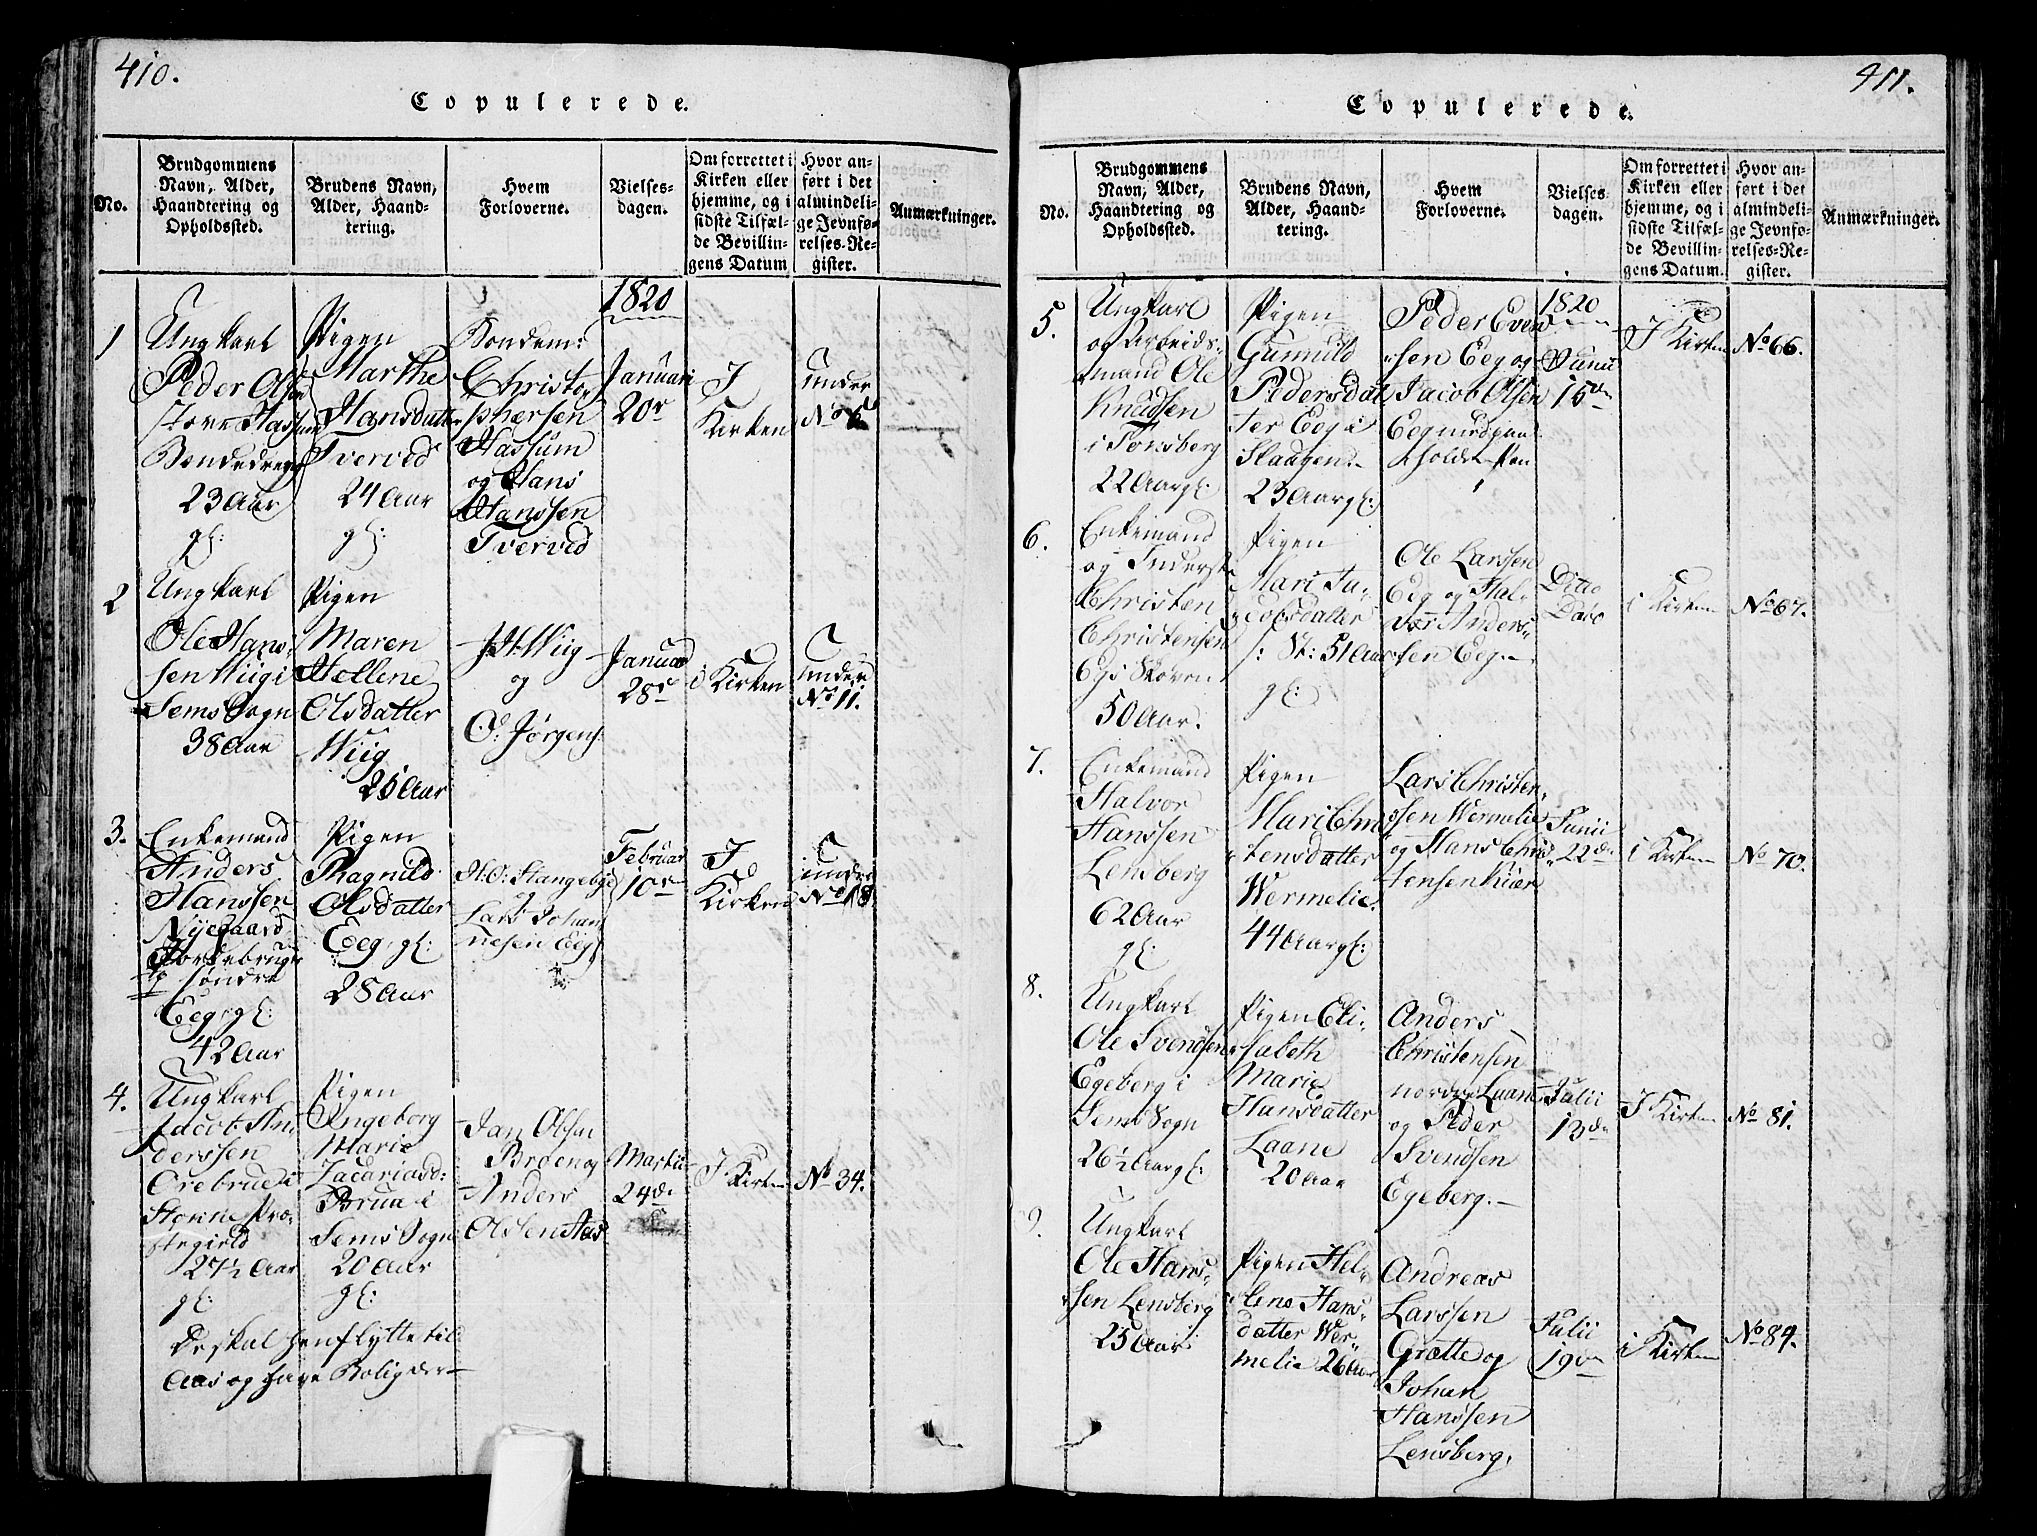 410.
Copulerede.
No.
Brudgommens
Navn, Alder,
Haandtering og
Opholdssted.
Brudens Navn,
Alder, Haand-
tering.
Hvem
Forloverne.
Vielses-
dagen.
Om forrettet i
Kirken eller
hjemme, og i
sidste Tilfæl-
de Bevillin-
gens Datum
Hvor an-
ført i det
almindeli-
ge Jevnfø-
relses-Re-
gister.
Anmærkninger.
1820
1
Ungkarl
Peder Olsen
store Hassum
Bondedreng
23 Aar
gl:
Pigen
Marthe
Hansdatter
Tverved
24 Aar
gl:
Bondem:
Christo-
phersen
Hassum
og Hans
Hanssen
Tverved
Januari
20de
I
Kirken
under
No 6
2
Ungkarl
Ole Hans-
sen Wiig i
Sems Sogn
38 Aar
Pigen
Maren
Hellene
Olsdatter
Wiig
25 Aar
J. H. Wiig
og
O: Jørgens:
Januar
28de
i Kirken
under
No 11.
3.
Enkemand
Anders
Hanssen
Nyegaard
søndre
Eeg gl:
42 Aar
Pigen
Ragnild
Olsdatter
Eeg gl:
28 Aar
H. O: Stangebye
og
Lars Johan-
nesen Eeg
Februar
10de
I
Kirken
under
No 18
4.
Ungkarl
Jacob An-
derssen
Orebrue i
Præ-
stegield
27½ Aar
gl:
Pigen
Ingeborg
Marie
Zacariasd:
Bruu i
Sems Sogn
20 Aar
gl:
Jan Olsen
Broen og
Anders
Olsen Aas
Martii
24de
I Kirken
No 34.
De skal henflytte til
Aas og have Bolig der—
411.
Copulerede.
No.
Brudgommens
Navn, Alder,
Haandtering og
Opholdssted.
Brudens Navn,
Alder, Haand-
tering.
Hvem
Forloverne.
Vielses
dagen.
Om forrettet i
Kirken eller
hjemme, og i
sidste Tilfæl-
de Bevillin-
gens Datum.
Hvor an-
ført i det
almindeli-
ge Jevnfø-
relses-Re-
gister.
Anmærkninger.
5.
Ungkarl
og Arbeids-
mand Ole
Knudsen
i Tønsberg
22 Aar gl:
Pigen
Gunnild
Pedersdat
ter Eeg i
Slaugen.
23 Aar gl:
Peder Even
sen Eeg og
Jacob Olsen
Eeg med paa
holden Pen
1820
Junii
15de
I Kirken
No 66.
6.
Enkemand
og Inderst
Christen
Christensen
Egs Skoven
50 Aar.
Pigen
Mari Ja-
cobsdatter
51 Aar
gl:
Ole Larssen
Eeg og Hal-
vor Anders-
sen Eeg.—
Ditto
Dato
i Kirken
No 67.
7.
Enkemand
Halvor
Hanssen
Lensberg
62 Aar
gl:
Pigen
Mari Chri
stensdatter
Wermelie.
44 Aar gl:
Lars Christen-
sen Wermelie
og Hans Chris-
tensen Kiær
Junii
22de
i Kirken
No 70.
8.
Ungkarl
Ole Svendsen
Egeberg i
Sems Sogn
26½ Aar gl:
Pigen Eli-
sabeth
Marie
Hansdatter
Laane
20 Aar
Anders
Christensen
nordre Laane
og Peder
Svendsen
Egeberg.—
Julii
13de
I Kirken
No 81.
9.
Ungkarl
Ole Hans-
sen Lensberg
25 Aar
Pigen Hel-
lene Hans-
datter Wer-
melie 26 Aar
Andreas
Larssen
Grette og
Johan
Hanssen
Lensberg.
Julii
19de
i Kirken
No 84.